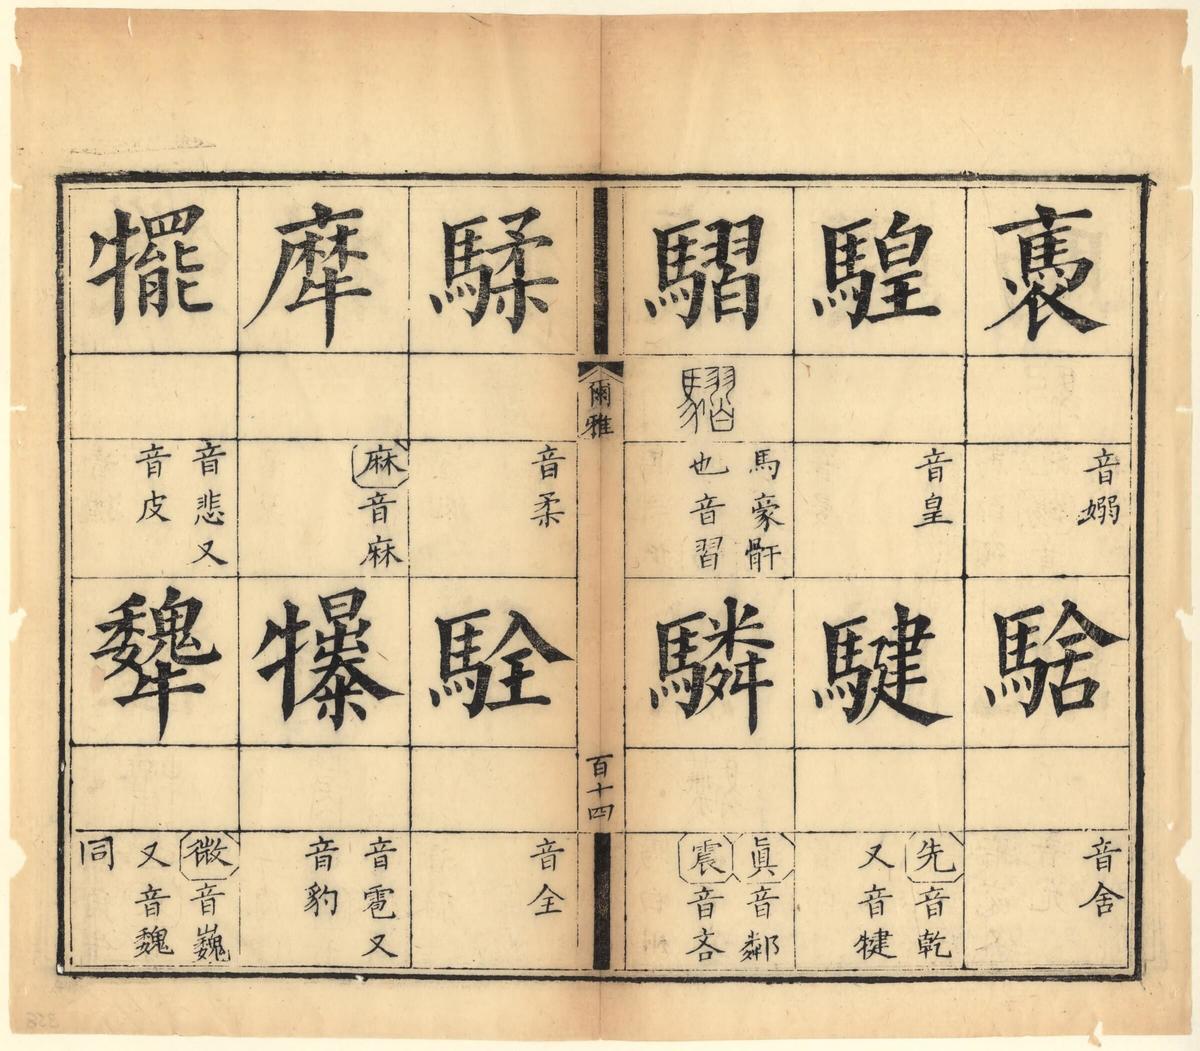 褭
音嫋
騇
音舍
騜
音皇
騝
先音乾
又音犍
騽
騽
馬豪骭
也音習
驎
眞音鄰
震音吝
爾雅
百十四
騥
音柔
駩
音全
犘
麻音麻
犦
音雹又
音豹
犤
音悲又
音皮
犩
微音巍
又音魏
同